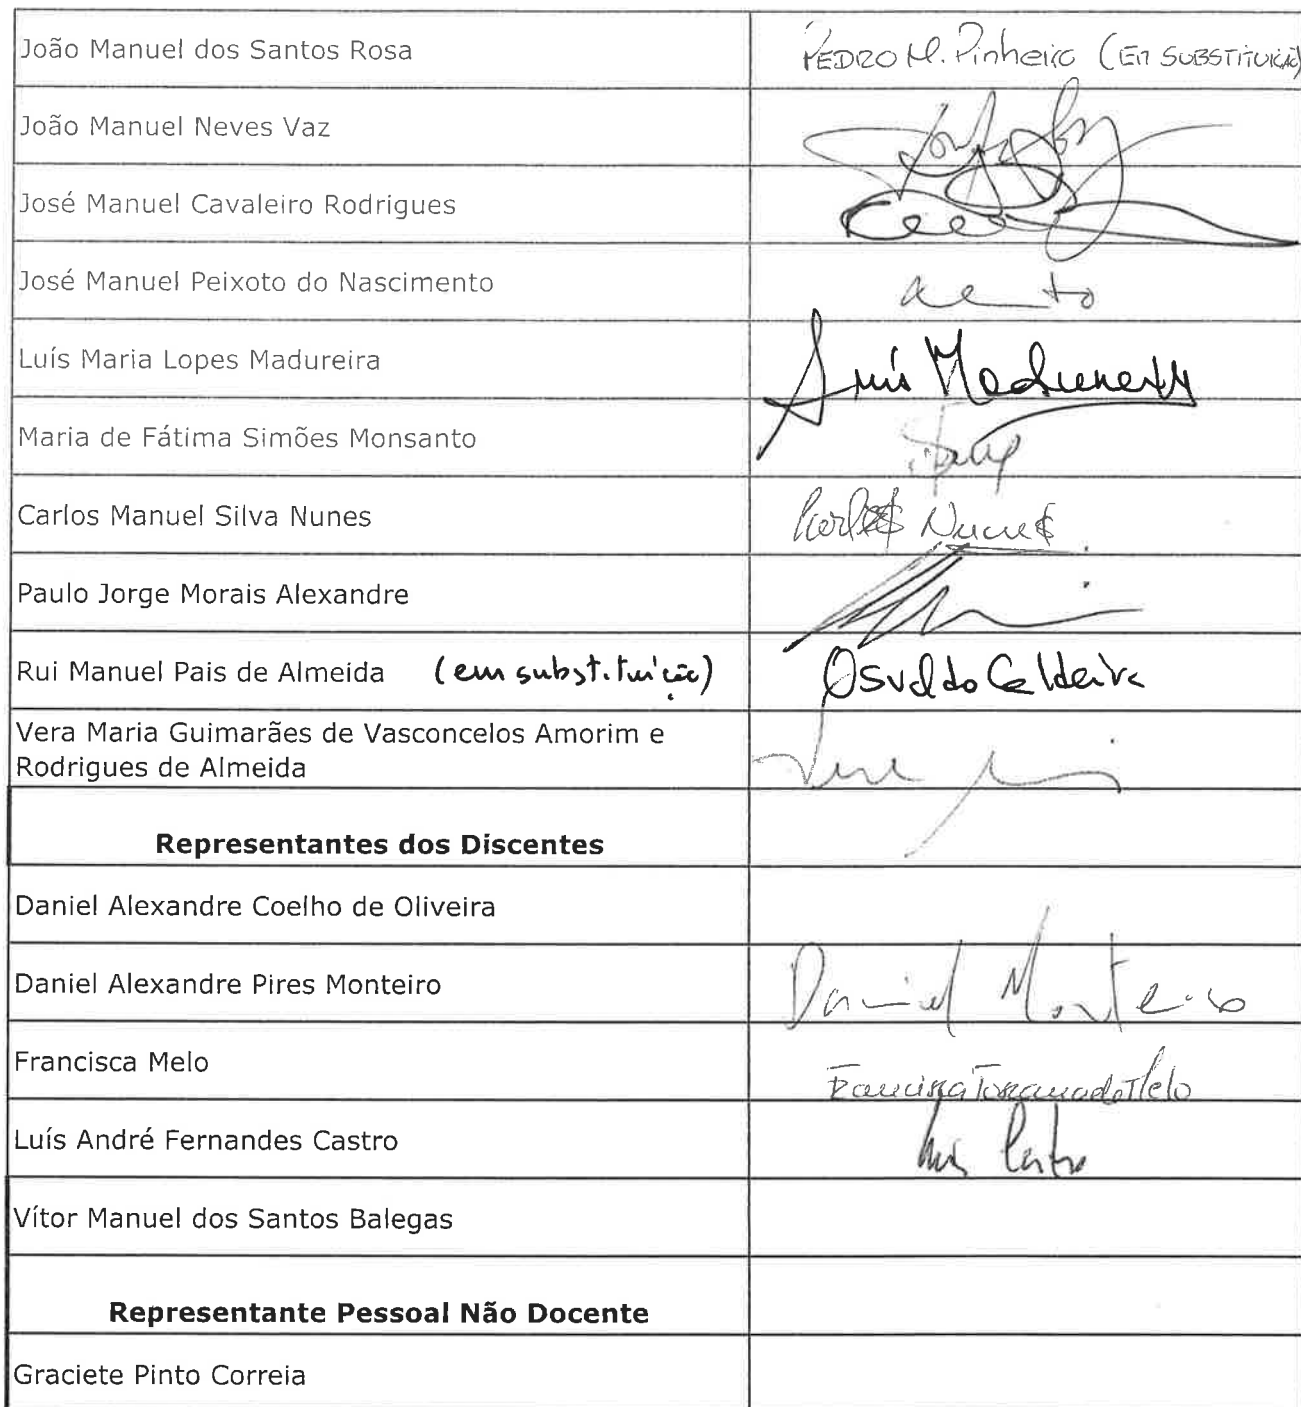 João Manuel dos Santos Rosa PEDRO M. Pinheiro (EM SUBSTITUIÇÃO)
João Manuel Neves Vaz
José Manuel Cavaleiro Rodrigues
José Manuel Peixoto do Nascimento
Luís Maria Lopes Madureira Luís Madureira
Maria de Fátima Simões Monsanto
Carlos Manuel Silva Nunes Carlos Nunes
Paulo Jorge Morais Alexandre
Rui Manuel Pais de Almeida (em substituição) Osvaldo Caldeira
Vera Maria Guimarães de Vasconcelos Amorim e
Rodrigues de Almeida Vera
Representantes dos Discentes
Daniel Alexandre Coelho de Oliveira
Daniel Alexandre Pires Monteiro Daniel Monteiro
Francisca Melo Francisca de Melo
Luís André Fernandes Castro Luís Castro
Vítor Manuel dos Santos Balegas
Representante Pessoal Não Docente
Graciete Pinto Correia